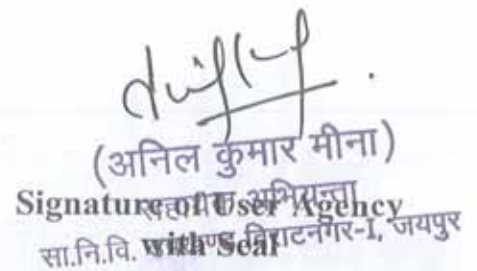 (अनिल कुमार मीना)
Signature of User Agency
सहायक अभियन्ता
with Seal
सा.नि.वि. विराटनगर-I, जयपुर